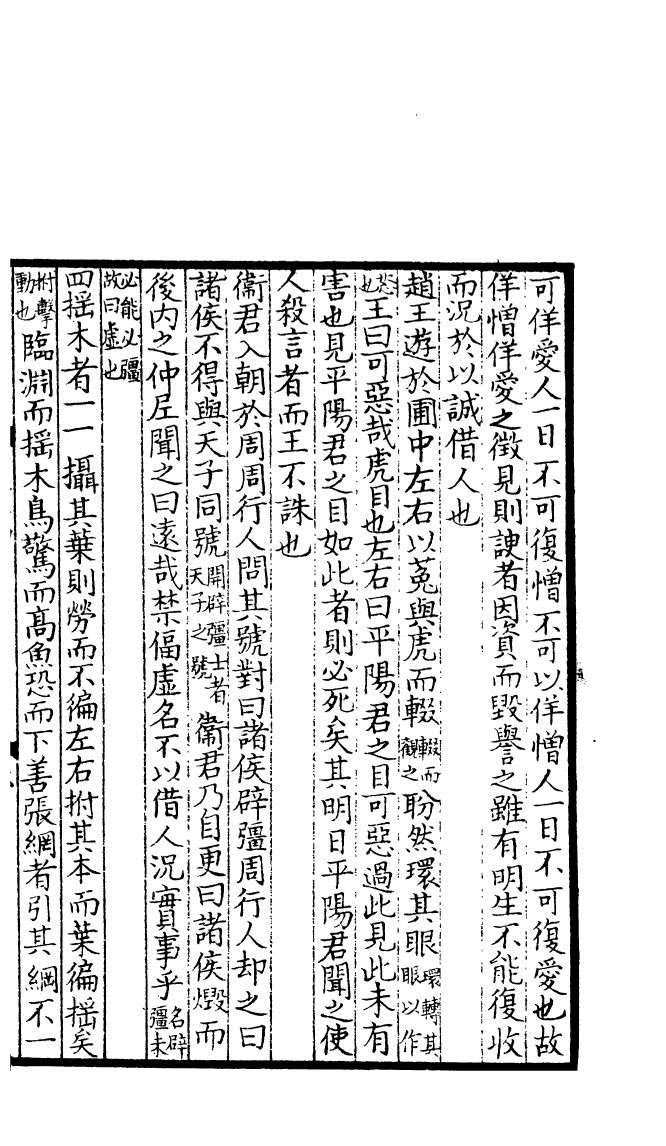 可佯愛人一日不可復憎不可以佯憎人一日不可復愛也故
佯憎佯愛之徵見則諛者因資而毀譽之雖有明主不能復收
而況於以誠借人也
趙王遊於圃中左右以菟與虎而輟輟而觀之盼然環其眼環轉其眼以作
怒也王曰可惡哉虎目也左右曰平陽君之目可惡過此見此未有
害也見平陽君之目如此者則必死矣其明日平陽君聞之使
人殺言者而王不誅也
衞君入朝於周周行人問其號對曰諸侯辟彊周行人却之曰
諸侯不得與天子同號開辟彊士者天子之號衞君乃自更曰諸侯燬而
後内之仲尼聞之曰遠哉禁偪虛名不以借人況實事乎名辟彊未
必能必彊故曰虛也
四揺木者一一攝其葉則勞而不徧左右拊其本而葉徧揺矣
拊擊動也臨淵而揺木鳥驚而高魚恐而下善張綱者引其綱不一